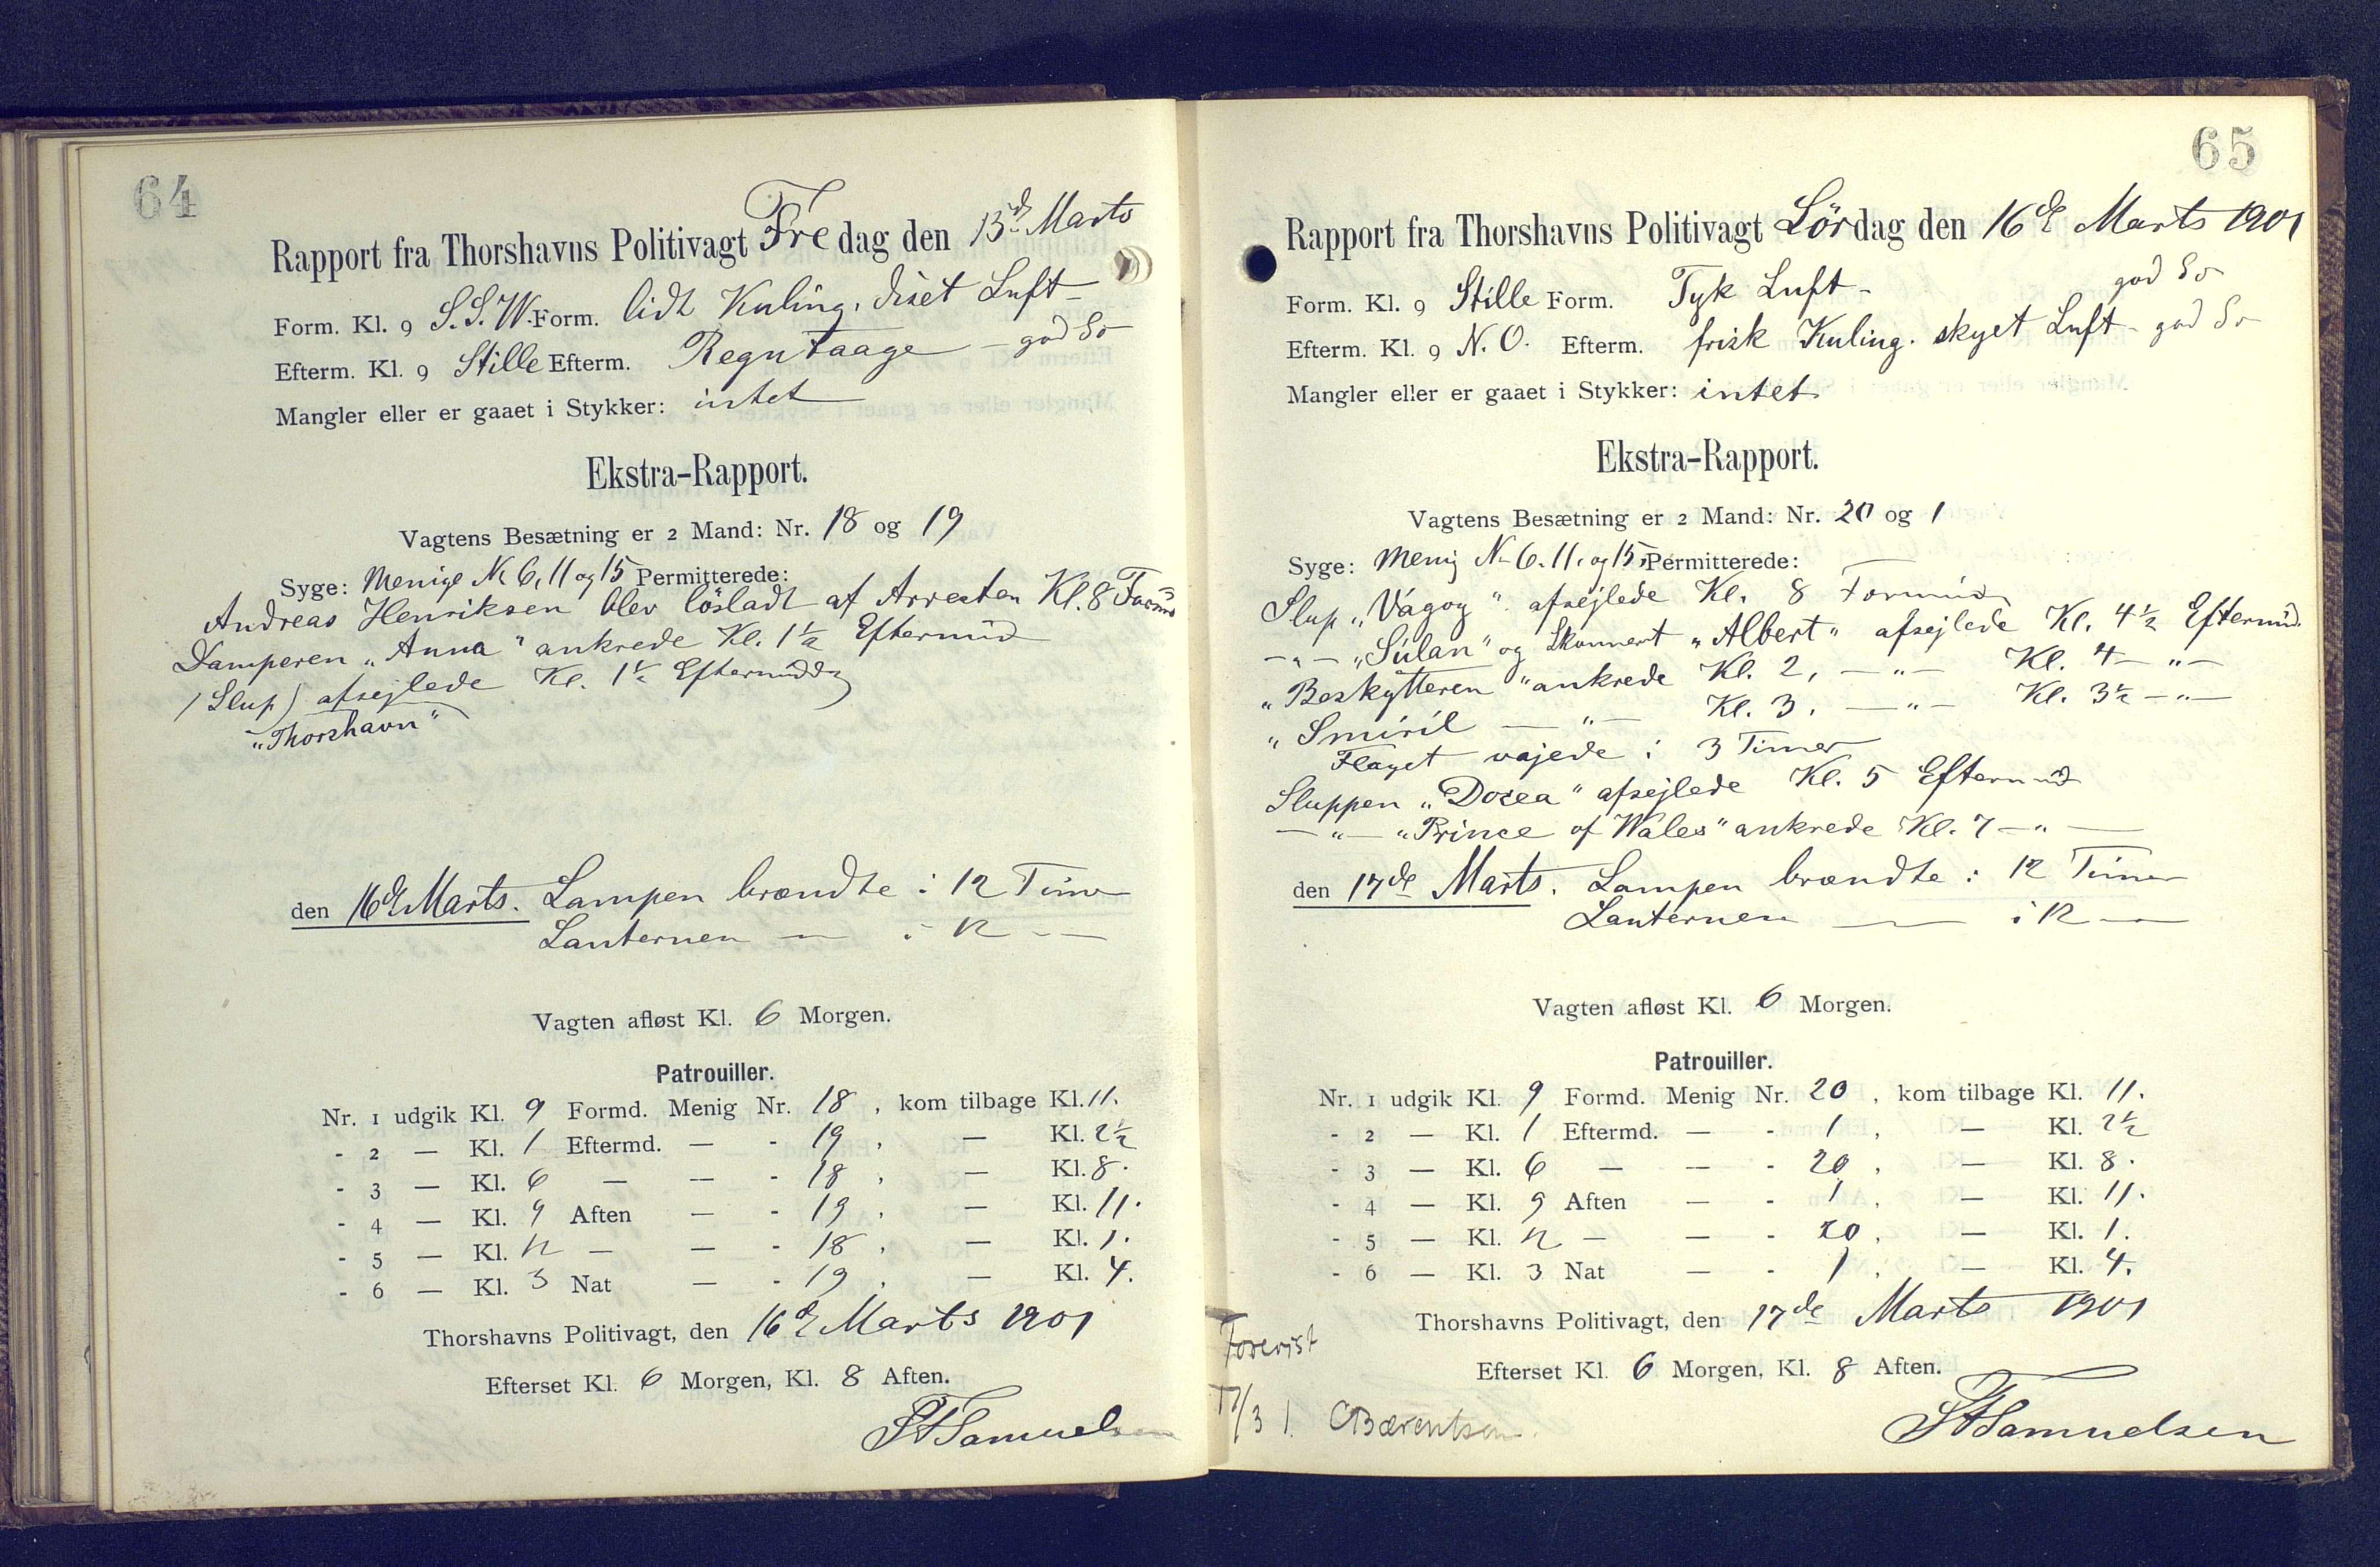 64
Rapport fra Thorshavns Politivagt Fredag den 15de Marts
Form. Kl. 9 S.S.W. Form. lidt Kuling, diset Luft -
Efterm. Kl. 9 Stille Efterm. Regntaage - god So
Mangler eller er gaaet i Stykker: intet
Ekstra-Rapport.
Vagtens Besætning er 2 Mand: Nr. 18 og 19
Syge: Menige N. 6, 11 og 15 Permitterede:
Andreas Henriksen blev lösladt af Arresten Kl. 8 Formd
Damperen „Anna" ankrede Kl. 1½ Eftermid
(Slup) afsejlede Kl. 1½ Eftermiddag
„Thorshavn"
den 16de Marts. Lampen brændte i 12 Timer
Lanternen — i 12 —
Vagten afløst Kl. 6 Morgen.
Patrouiller.
Nr. 1 udgik Kl. 9 Formd. Menig Nr. 18, kom tilbage Kl. 11.
- 2 — Kl. 1 Eftermd. — - 19, — Kl. 2½
- 3 — Kl. 6 — — - 18, — Kl. 8.
- 4 — Kl. 9 Aften — - 19, — Kl. 11.
- 5 — Kl. 12 — — - 18, — Kl. 1.
- 6 — Kl. 3 Nat — - 19, — Kl. 4.
Thorshavns Politivagt, den 16de Marts 1901
Efterset Kl. 6 Morgen, Kl. 8 Aften.
Samuelsen
65
Rapport fra Thorshavns Politivagt Lördag den 16de Marts 1901
Form. Kl. 9 Stille Form. Tyk Luft - god So
Efterm. Kl. 9 N. O. Efterm. frisk Kuling. skyet Luft - god So
Mangler eller er gaaet i Stykker: intet
Ekstra-Rapport.
Vagtens Besætning er 2 Mand: Nr. 20 og 1
Syge: Menig N. 6. 11. og 15, Permitterede:
Slup „Vágoy" afsejlede Kl. 8 Formid
—„— „Súlan" og Skonnert „Albert" afsejlede Kl. 4½ Eftermid.
„Beskytteren" ankrede Kl. 2, —„— Kl. 4 —„—
„Smiril —„— Kl. 3. —„— Kl. 3½ —„—
Flaget vajede i 3 Timer
Sluppen „Dorea" afsejlede Kl. 5 Eftermid
—„— „Prince of Wales" ankrede Kl. 7 —„—
den 17de Marts. Lampen brændte i 12 Timer
Lanternen — i 12 —
Vagten afløst Kl. 6 Morgen.
Patrouiller.
Nr. 1 udgik Kl. 9 Formd. Menig Nr. 20, kom tilbage Kl. 11.
- 2 — Kl. 1 Eftermd. — - 1, — Kl. 2½
- 3 — Kl. 6 — — - 20, — Kl. 8.
- 4 — Kl. 9 Aften — - 1, — Kl. 11.
- 5 — Kl. 12 — — - 20, — Kl. 1.
- 6 — Kl. 3 Nat — - 1, — Kl. 4.
Thorshavns Politivagt, den 17de Marts 1901
Efterset Kl. 6 Morgen, Kl. 8 Aften.
Forevist
17/3 1. CBærentsen.
Samuelsen